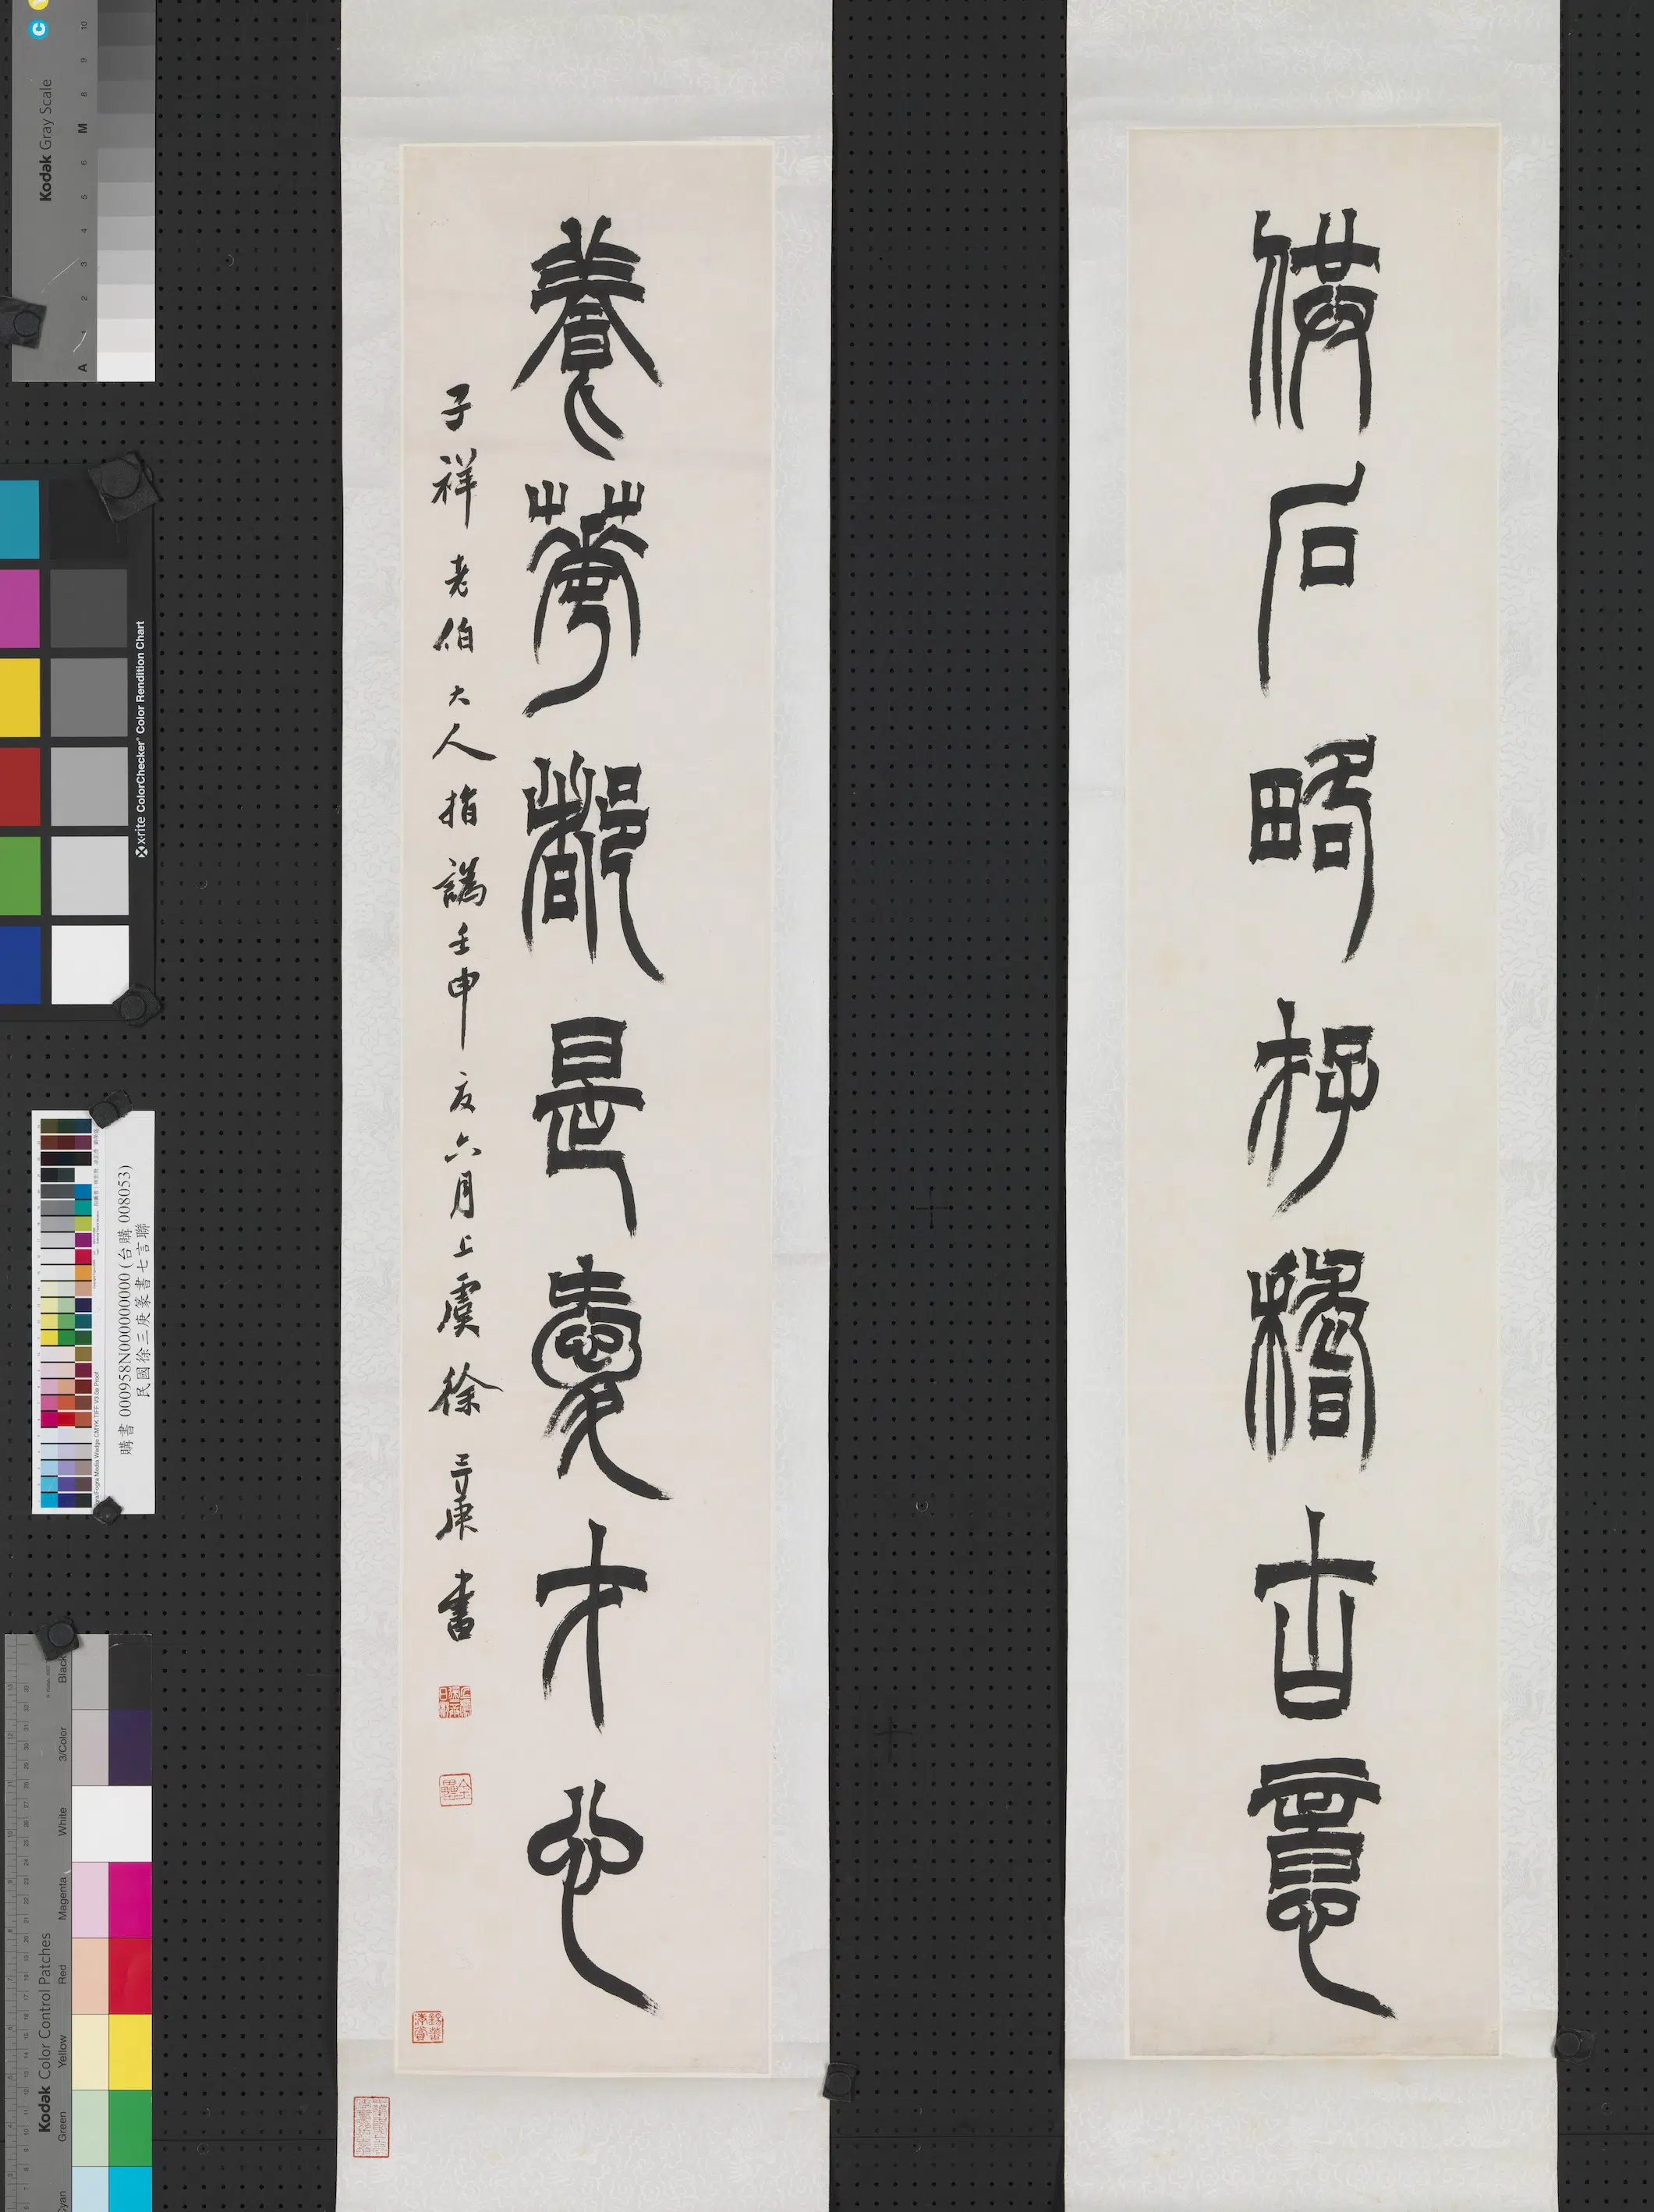 供石略存稽古意
養華都是愛才心
子祥老伯大人指譌壬申夏六月上虞徐三庚書
Kodak Gray Scale
A 1 2 3 4 5 6 M 8 9 10
x-rite ColorChecker Color Rendition Chart
購書 000958N000000000 (台購 008053)
民國徐三庚篆書七言聯
Kodak Color Control Patches
Cyan Green Yellow Red Magenta White 3/Color Black